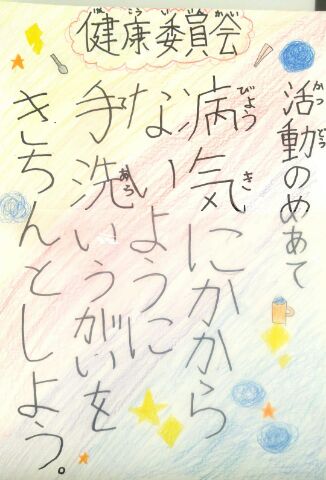 健康委員会
活動のめあて
病気にかから
ないように
手洗いうがいを
きちんとしよう。